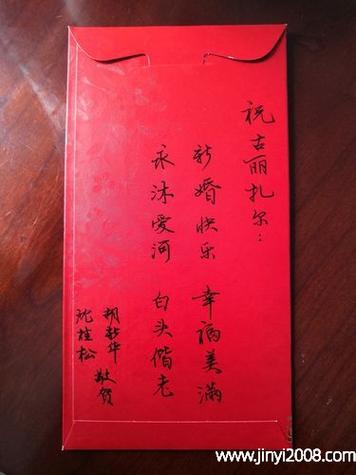 祝古丽扎尔：
新婚快乐 幸福美满
永沐爱河 白头偕老
胡新华
沈桂松
敬贺
www.jinyi2008.com